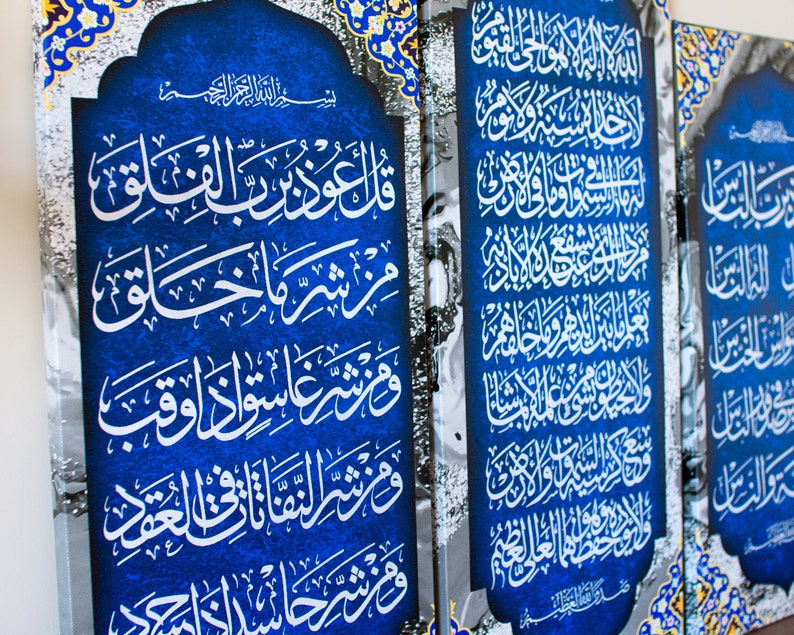 بسم الله الرحمن الرحيم
قل أعوذ برب الفلق
من شر ما خلق
ومن شر غاسق اذا وقب
ومن شر النفاثات في العقد
ومن شر حاسد اذا حسد
الله لا اله الا هو الحي القيوم
لا تاخذه سنة ولا نوم
له ما في السموات وما في الأرض
من ذا الذي يشفع عنده الا باذنه
يعلم ما بين ايديهم وما خلفهم
ولا يحيطون بشيء من علمه الا بما شاء
وسع كرسيه السموات والارض
ولا يؤده حفظهما وهو العلي العظيم
صدق الله العظيم
بسم الله الرحمن الرحيم
برب الناس
اله الناس
الناس
والناس